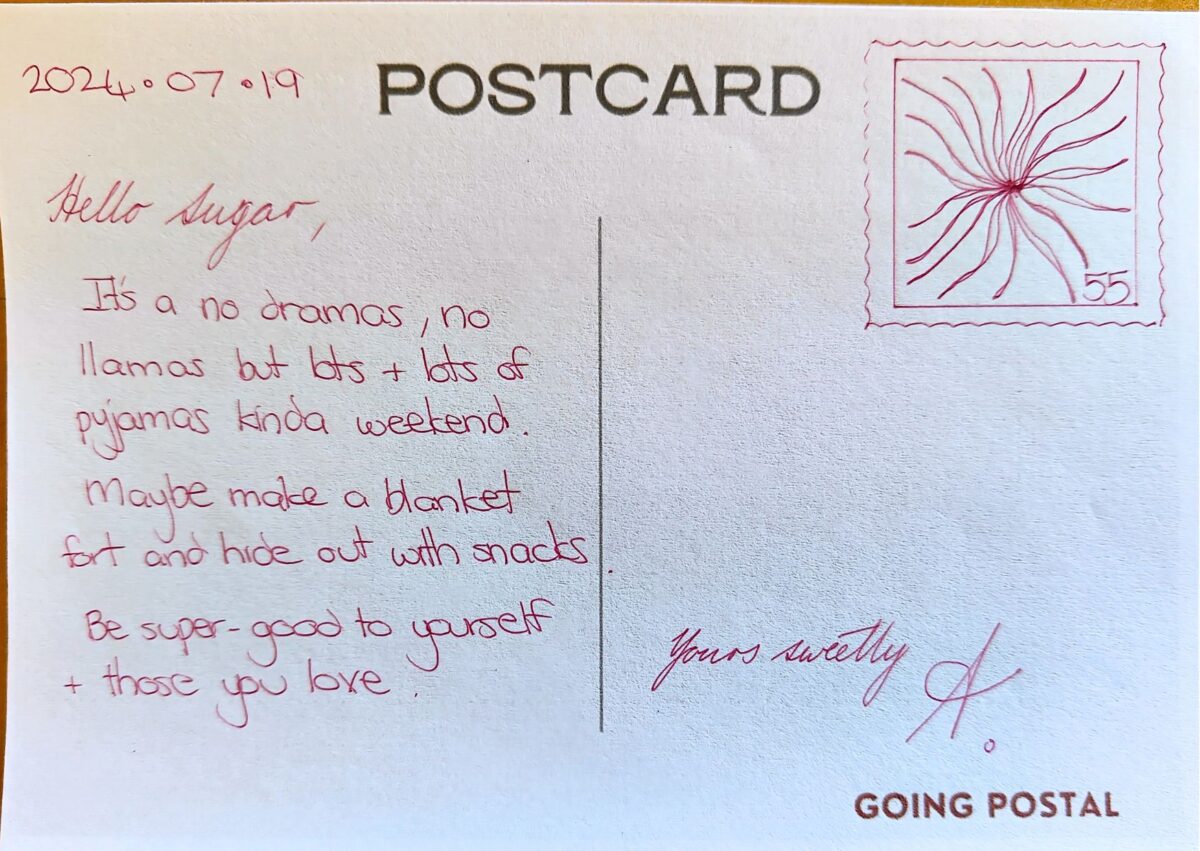 2024.07.19
POSTCARD
55
Hello Sugar,
It's a no dramas, no
llamas but lots + lots of
pyjamas kinda weekend.
Maybe make a blanket
fort and hide out with snacks.
Be super-good to yourself
+ those you love.
Yours sweetly
A.
GOING POSTAL